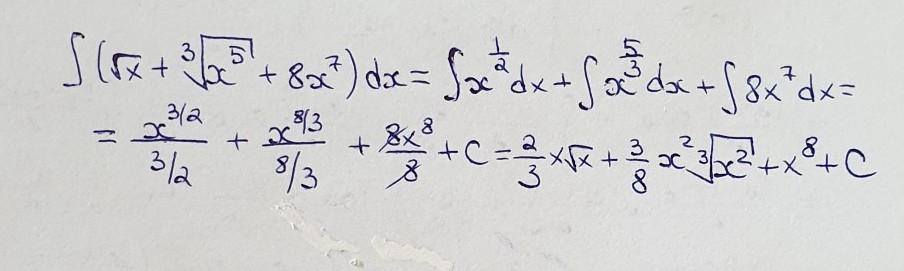 ∫(√x + ∛(x⁵) + 8x⁷)dx = ∫x^(1/2)dx + ∫x^(5/3)dx + ∫8x⁷dx =
= x^(3/2)/(3/2) + x^(8/3)/(8/3) + 8x⁸/8 + C = 2/3 x√x + 3/8 x² ∛(x²) + x⁸ + C